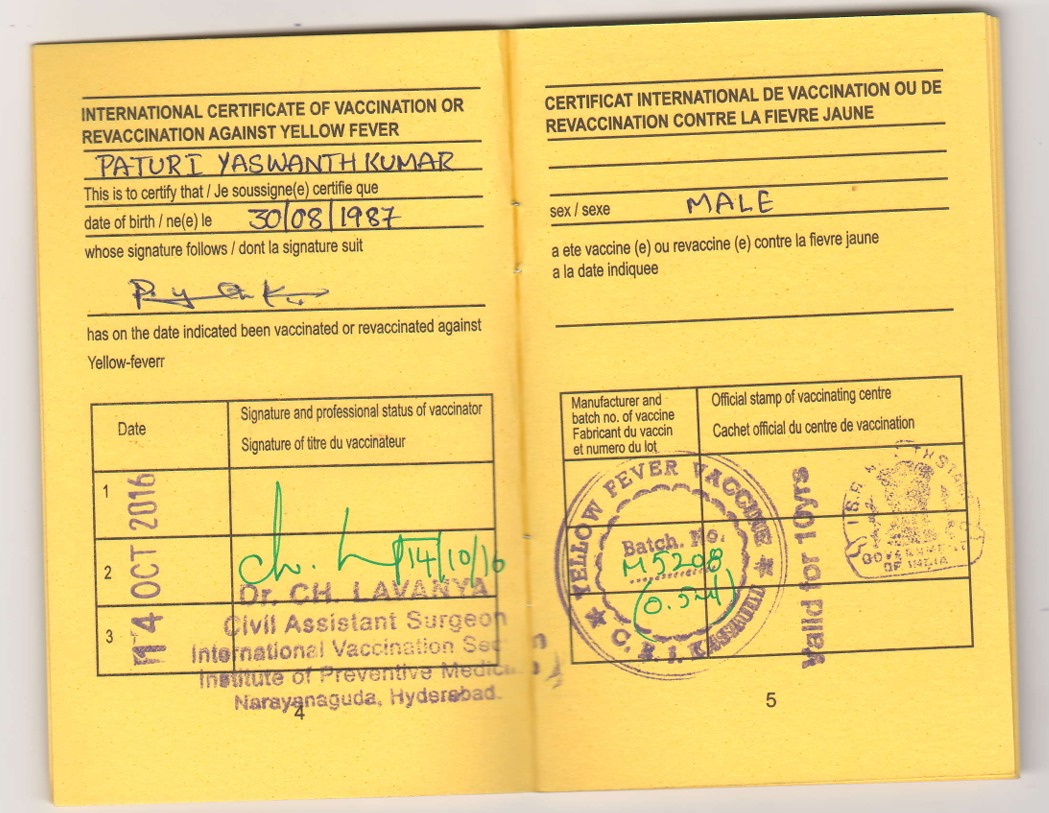 INTERNATIONAL CERTIFICATE OF VACCINATION OR
REVACCINATION AGAINST YELLOW FEVER
PATURI YASWANTH KUMAR
This is to certify that / Je soussigne(e) certifie que
date of birth / ne(e) le 30/08/1987
whose signature follows / dont la signature suit
has on the date indicated been vaccinated or revaccinated against
Yellow-feverr
Date
Signature and professional status of vaccinator
Signature of titre du vaccinateur
1
2
3
14 OCT 2016
14/10/16
Dr. CH. LAVANYA
Civil Assistant Surgeon
International Vaccination Sec
Institute of Preventive Medici
Narayanaguda, Hyderabad.
4
CERTIFICAT INTERNATIONAL DE VACCINATION OU DE
REVACCINATION CONTRE LA FIEVRE JAUNE
sex / sexe MALE
a ete vaccine (e) ou revaccine (e) contre la fievre jaune
a la date indiquee
Manufacturer and
batch no. of vaccine
Fabricant du vaccin
et numero du lot
Official stamp of vaccinating centre
Cachet official du centre de vaccination
YELLOW FEVER VACCINE
Batch. No.
M5208
(0.5ml)
C. R. I. KASAULI
Valid for 10yrs
GOVERNMENT
OF INDIA
5